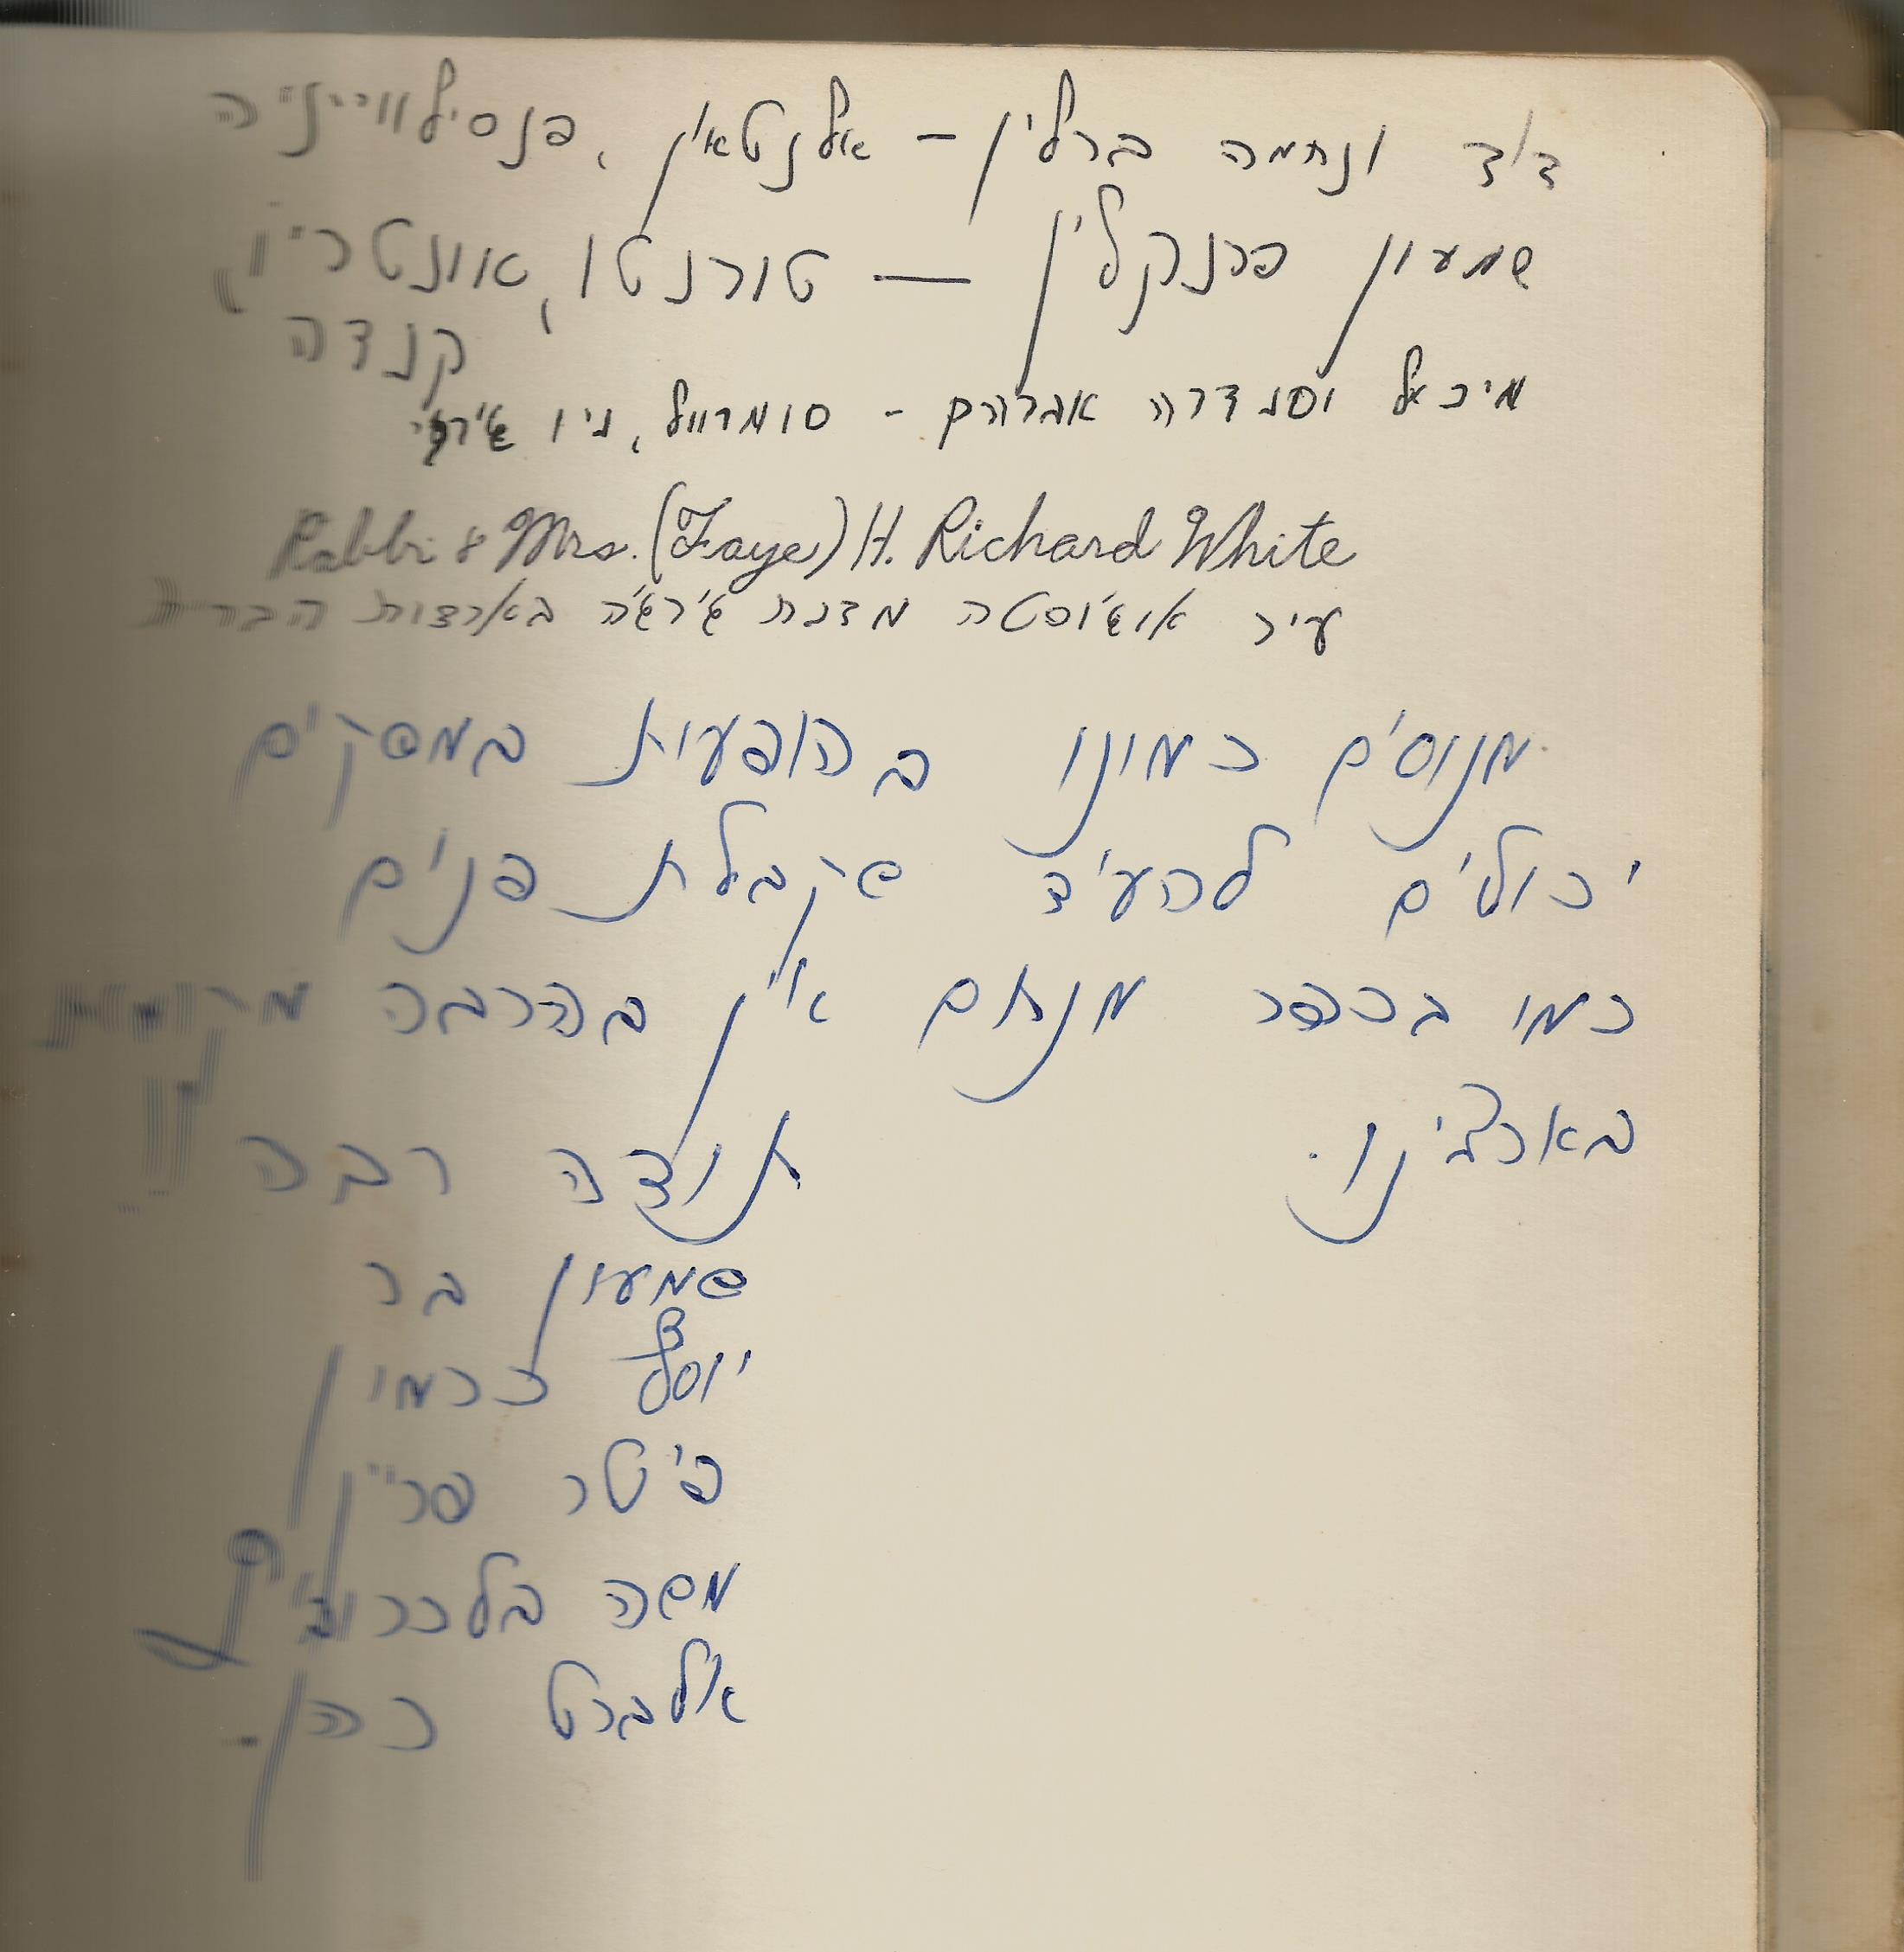 דוד ונחמה ברלין – אלנטאון, פנסילווייניה
שמעון פרנקלין — טורנטו, אונטריו,
קנדה
מיכאל וסנדרה אברהם - סומרוויל, ניו
Rabbi & Mrs. (Faye) H. Richard White
עיר אוגוסטה מדנת בארצות הברית
מנוסים כמונו בהופעות במשקים
יכולים להעיד שקבלת פנים
כמו בכפר מנחם אין בהרבה מקומות
בארצינו. תודה רבה !!
שמעון בר
יוסף כרמון
פיטר
משה
אלברט כהן.